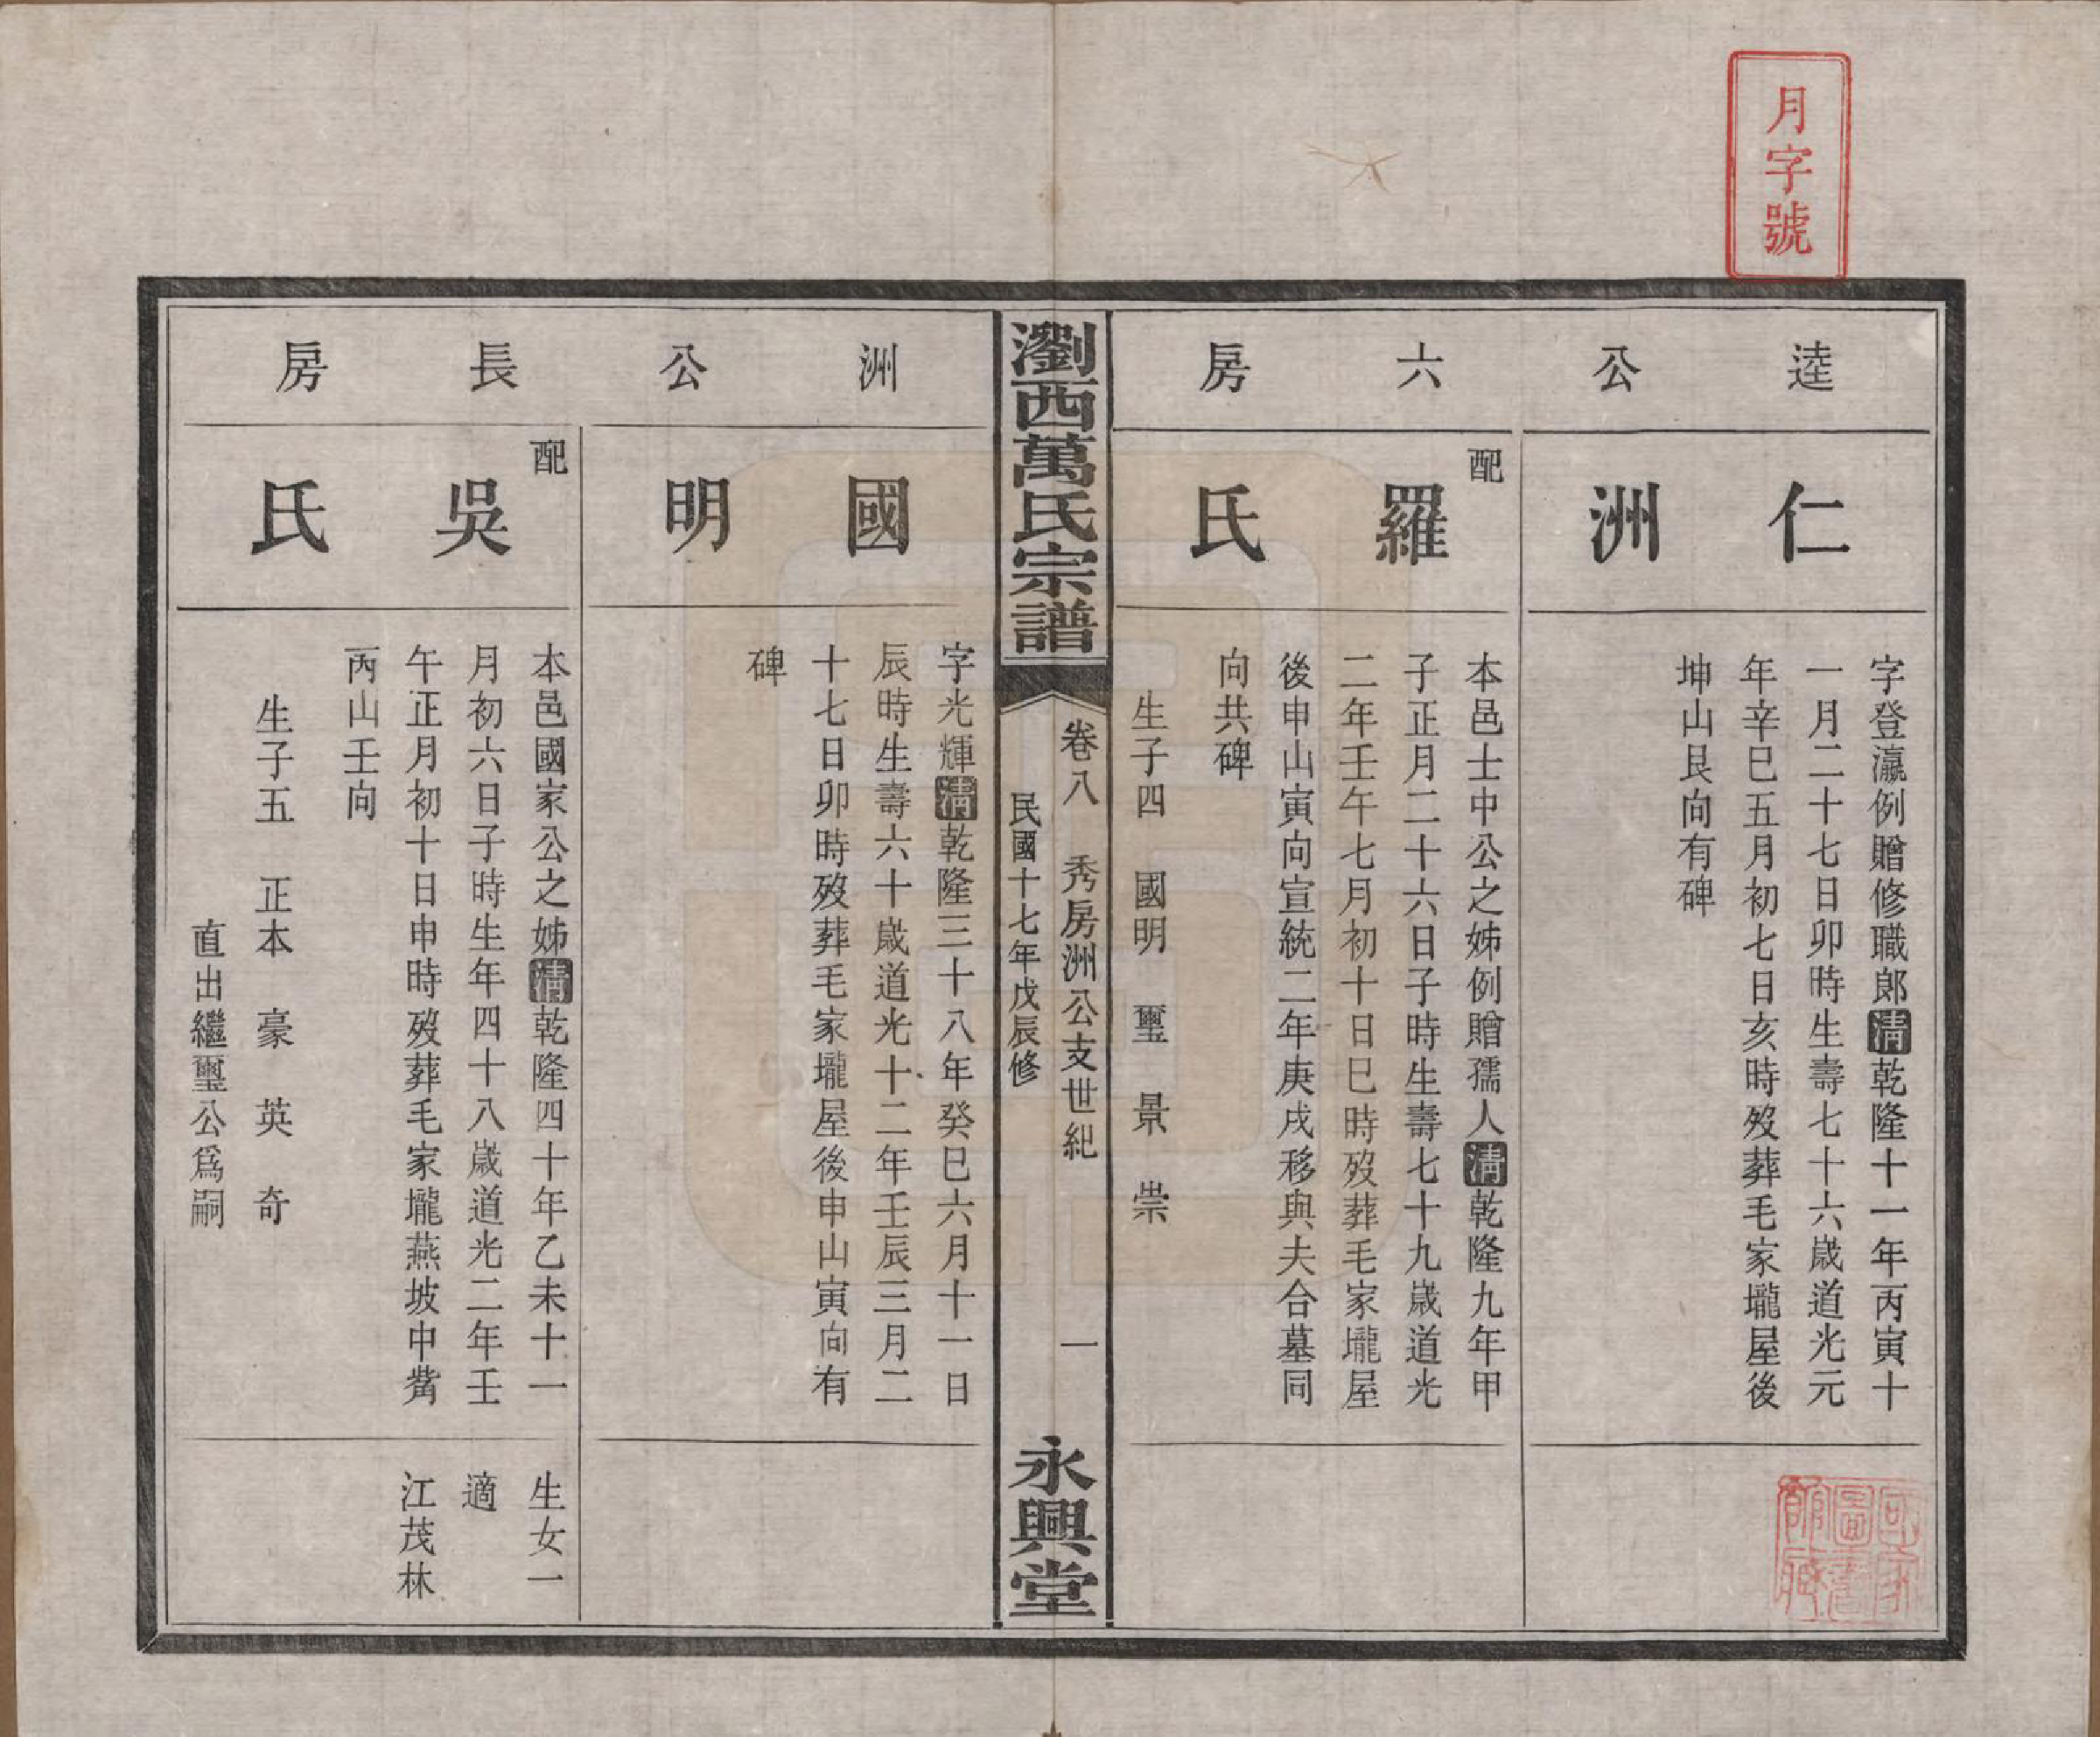 月字號
逵公六房
仁洲
字登瀛例贈修職郎清乾隆十一年丙寅十
一月二十七日卯時生壽七十六歲道光元
年辛巳五月初七日亥時歿葬毛家壠屋後
坤山艮向有碑
配
羅氏
本邑士中公之姊例贈孺人清乾隆九年甲
子正月二十六日子時生壽七十九歲道光
二年壬午七月初十日巳時歿葬毛家壠屋
後申山寅向宣統二年庚戌移與夫合墓同
向共碑
生子四 國明 璽 景 崇
瀏西萬氏宗譜
卷八 秀房洲公支世紀 一
民國十七年戊辰修
永興堂
洲公長房
國明
字光輝清乾隆三十八年癸巳六月十一日
辰時生壽六十歲道光十二年壬辰三月二
十七日卯時歿葬毛家壠屋後申山寅向有
碑
配
吳氏
本邑國家公之姊清乾隆四十年乙未十一
月初六日子時生年四十八歲道光二年壬
午正月初十日申時歿葬毛家壠燕坡中觜
丙山壬向
生子五 正本 豪 英 奇
直出繼璽公爲嗣
生女一
適
江茂林
國家
圖書
館藏